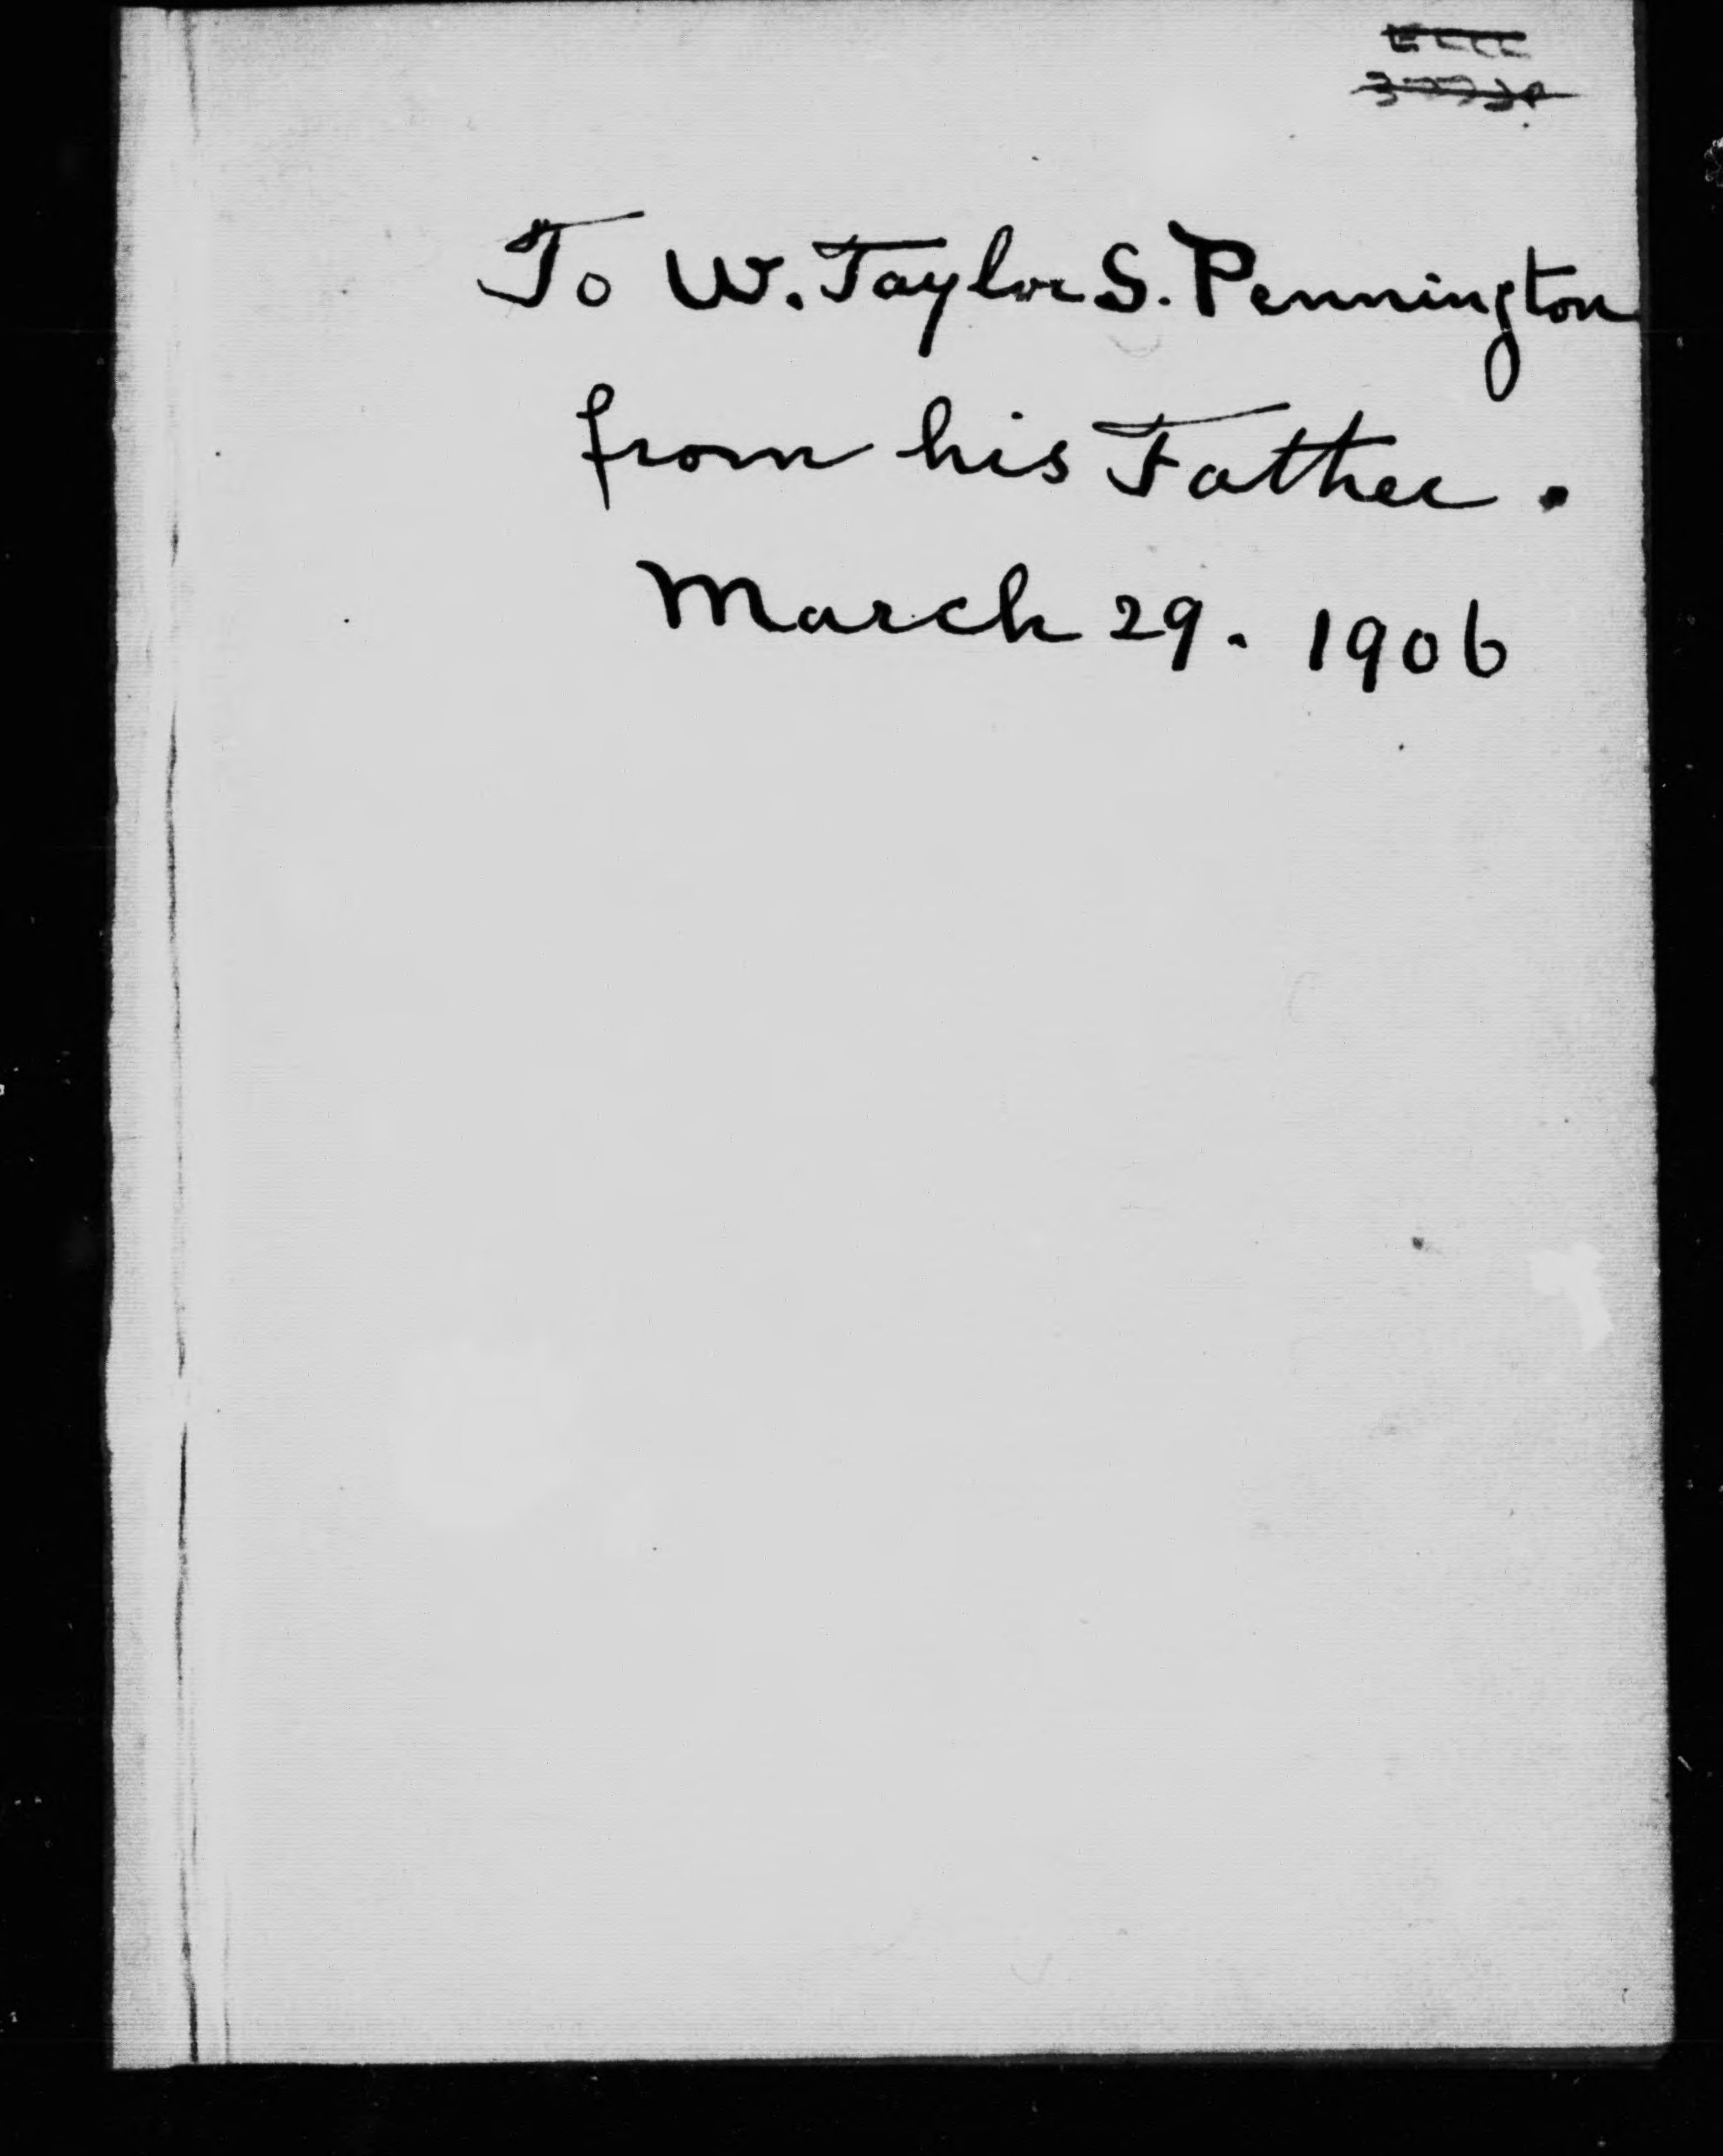 To W. Taylor S. Pennington
from his Father.
March 29. 1906